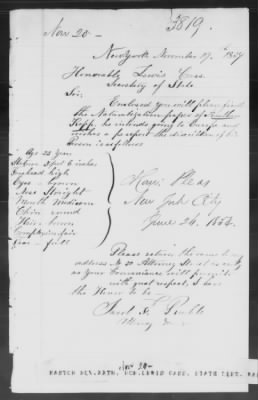 Nov 20 -
5819.
New York November 19th 1857
Honorable Lewis Cass
Secretary of State
Sir:
Enclosed you will please find
the Naturalization paper of
he intends going to Europe and
wishes a passport the description of his
Person is as follows
Age 23 years
Stature 5 feet 6 inches
Forehead high
Eyes brown
Nose straight
Mouth Medium
Chin round
Hair brown
Complexion fair
Face full
New York City
June 24, 185
Please return the same to my
address No Attorney St as soon
as your Convenience will permit
with great respect, I have
the Honor to be
Nov 20 -
HON. LEWIS CASS, STATE DEPT.